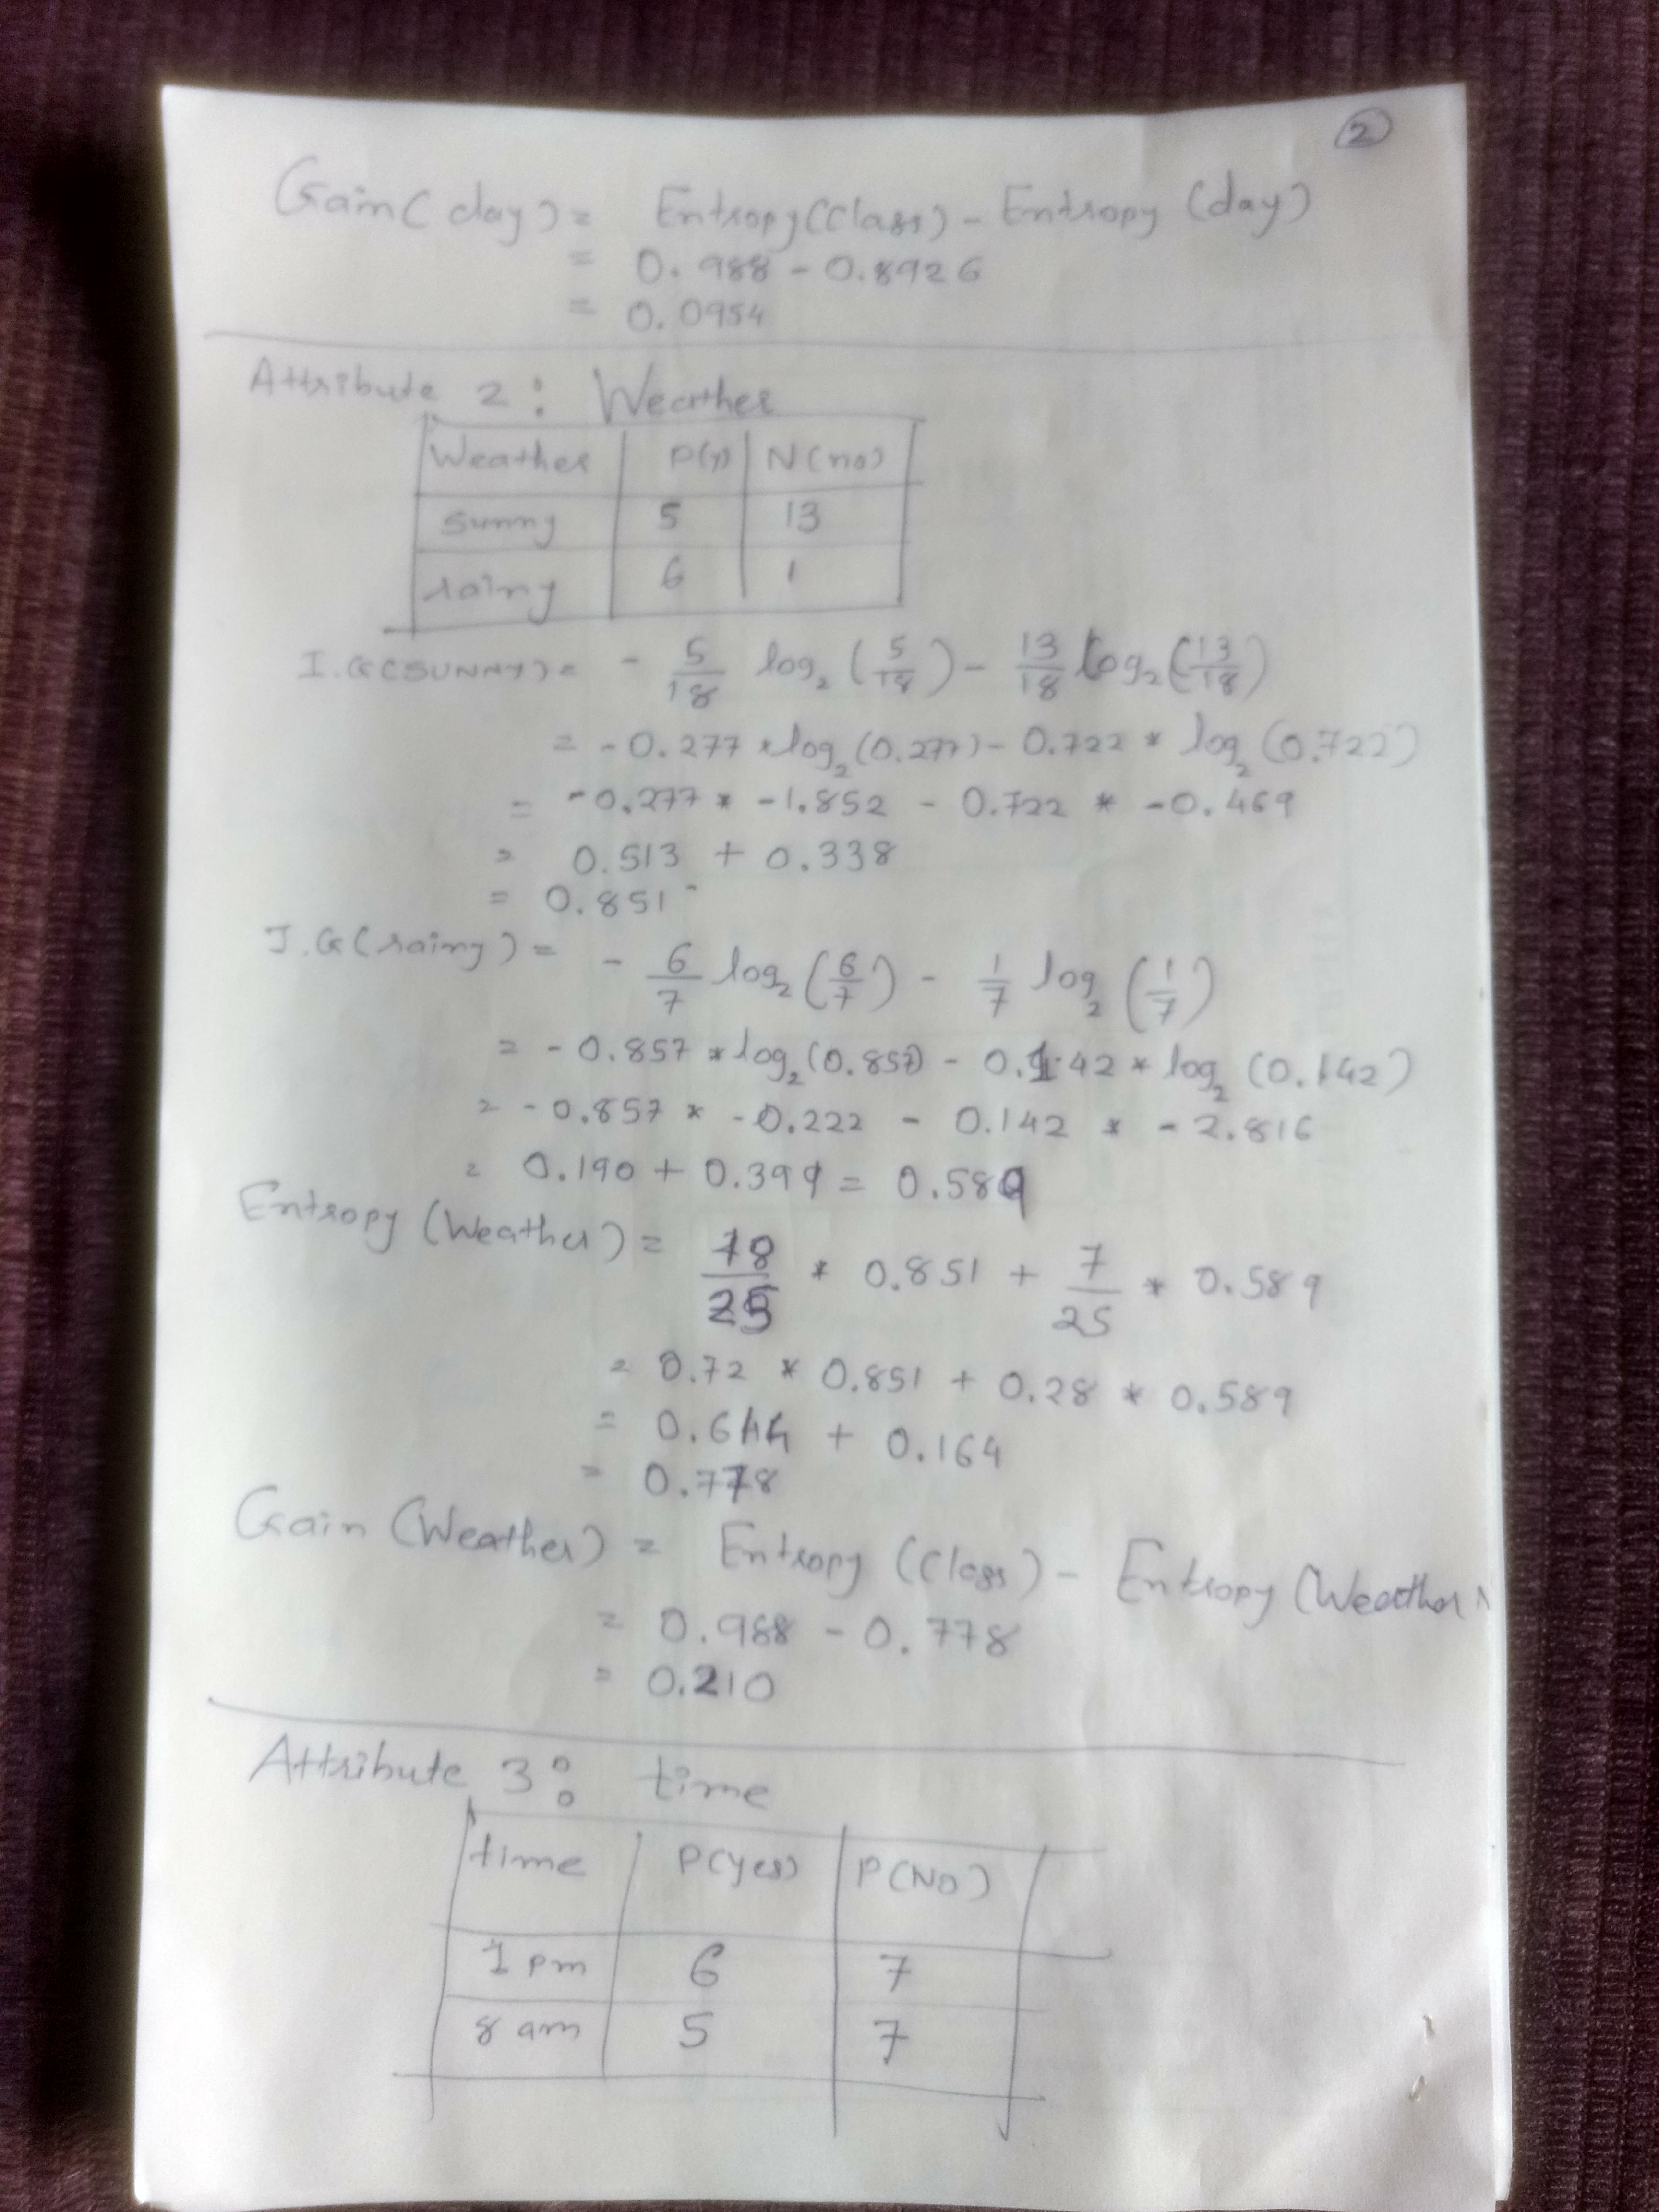 2
Gain(day) = Entropy(Class) - Entropy (day)
= 0.988 - 0.8926
= 0.0954
Attribute 2: Weather
Weather P(y) N(no)
sunny 5 13
rainy 6 1
I.G(SUNNY) = - 5/18 log₂ (5/18) - 13/18 log₂ (13/18)
= -0.277 * log₂ (0.277) - 0.722 * log₂ (0.722)
= -0.277 * -1.852 - 0.722 * -0.469
= 0.513 + 0.338
= 0.851
I.G(rainy) = - 6/7 log₂ (6/7) - 1/7 log₂ (1/7)
= -0.857 * log₂ (0.857) - 0.142 * log₂ (0.142)
= -0.857 * -0.222 - 0.142 * -2.816
= 0.190 + 0.399 = 0.589
Entropy (Weather) = 18/25 * 0.851 + 7/25 * 0.589
= 0.72 * 0.851 + 0.28 * 0.589
= + 0.164
= 0.778
Gain (Weather) = Entropy (Class) - Entropy (Weather)
= 0.988 - 0.778
= 0.210
Attribute 3: time
time P(yes) P(NO)
1 pm 6 7
8 am 5 7